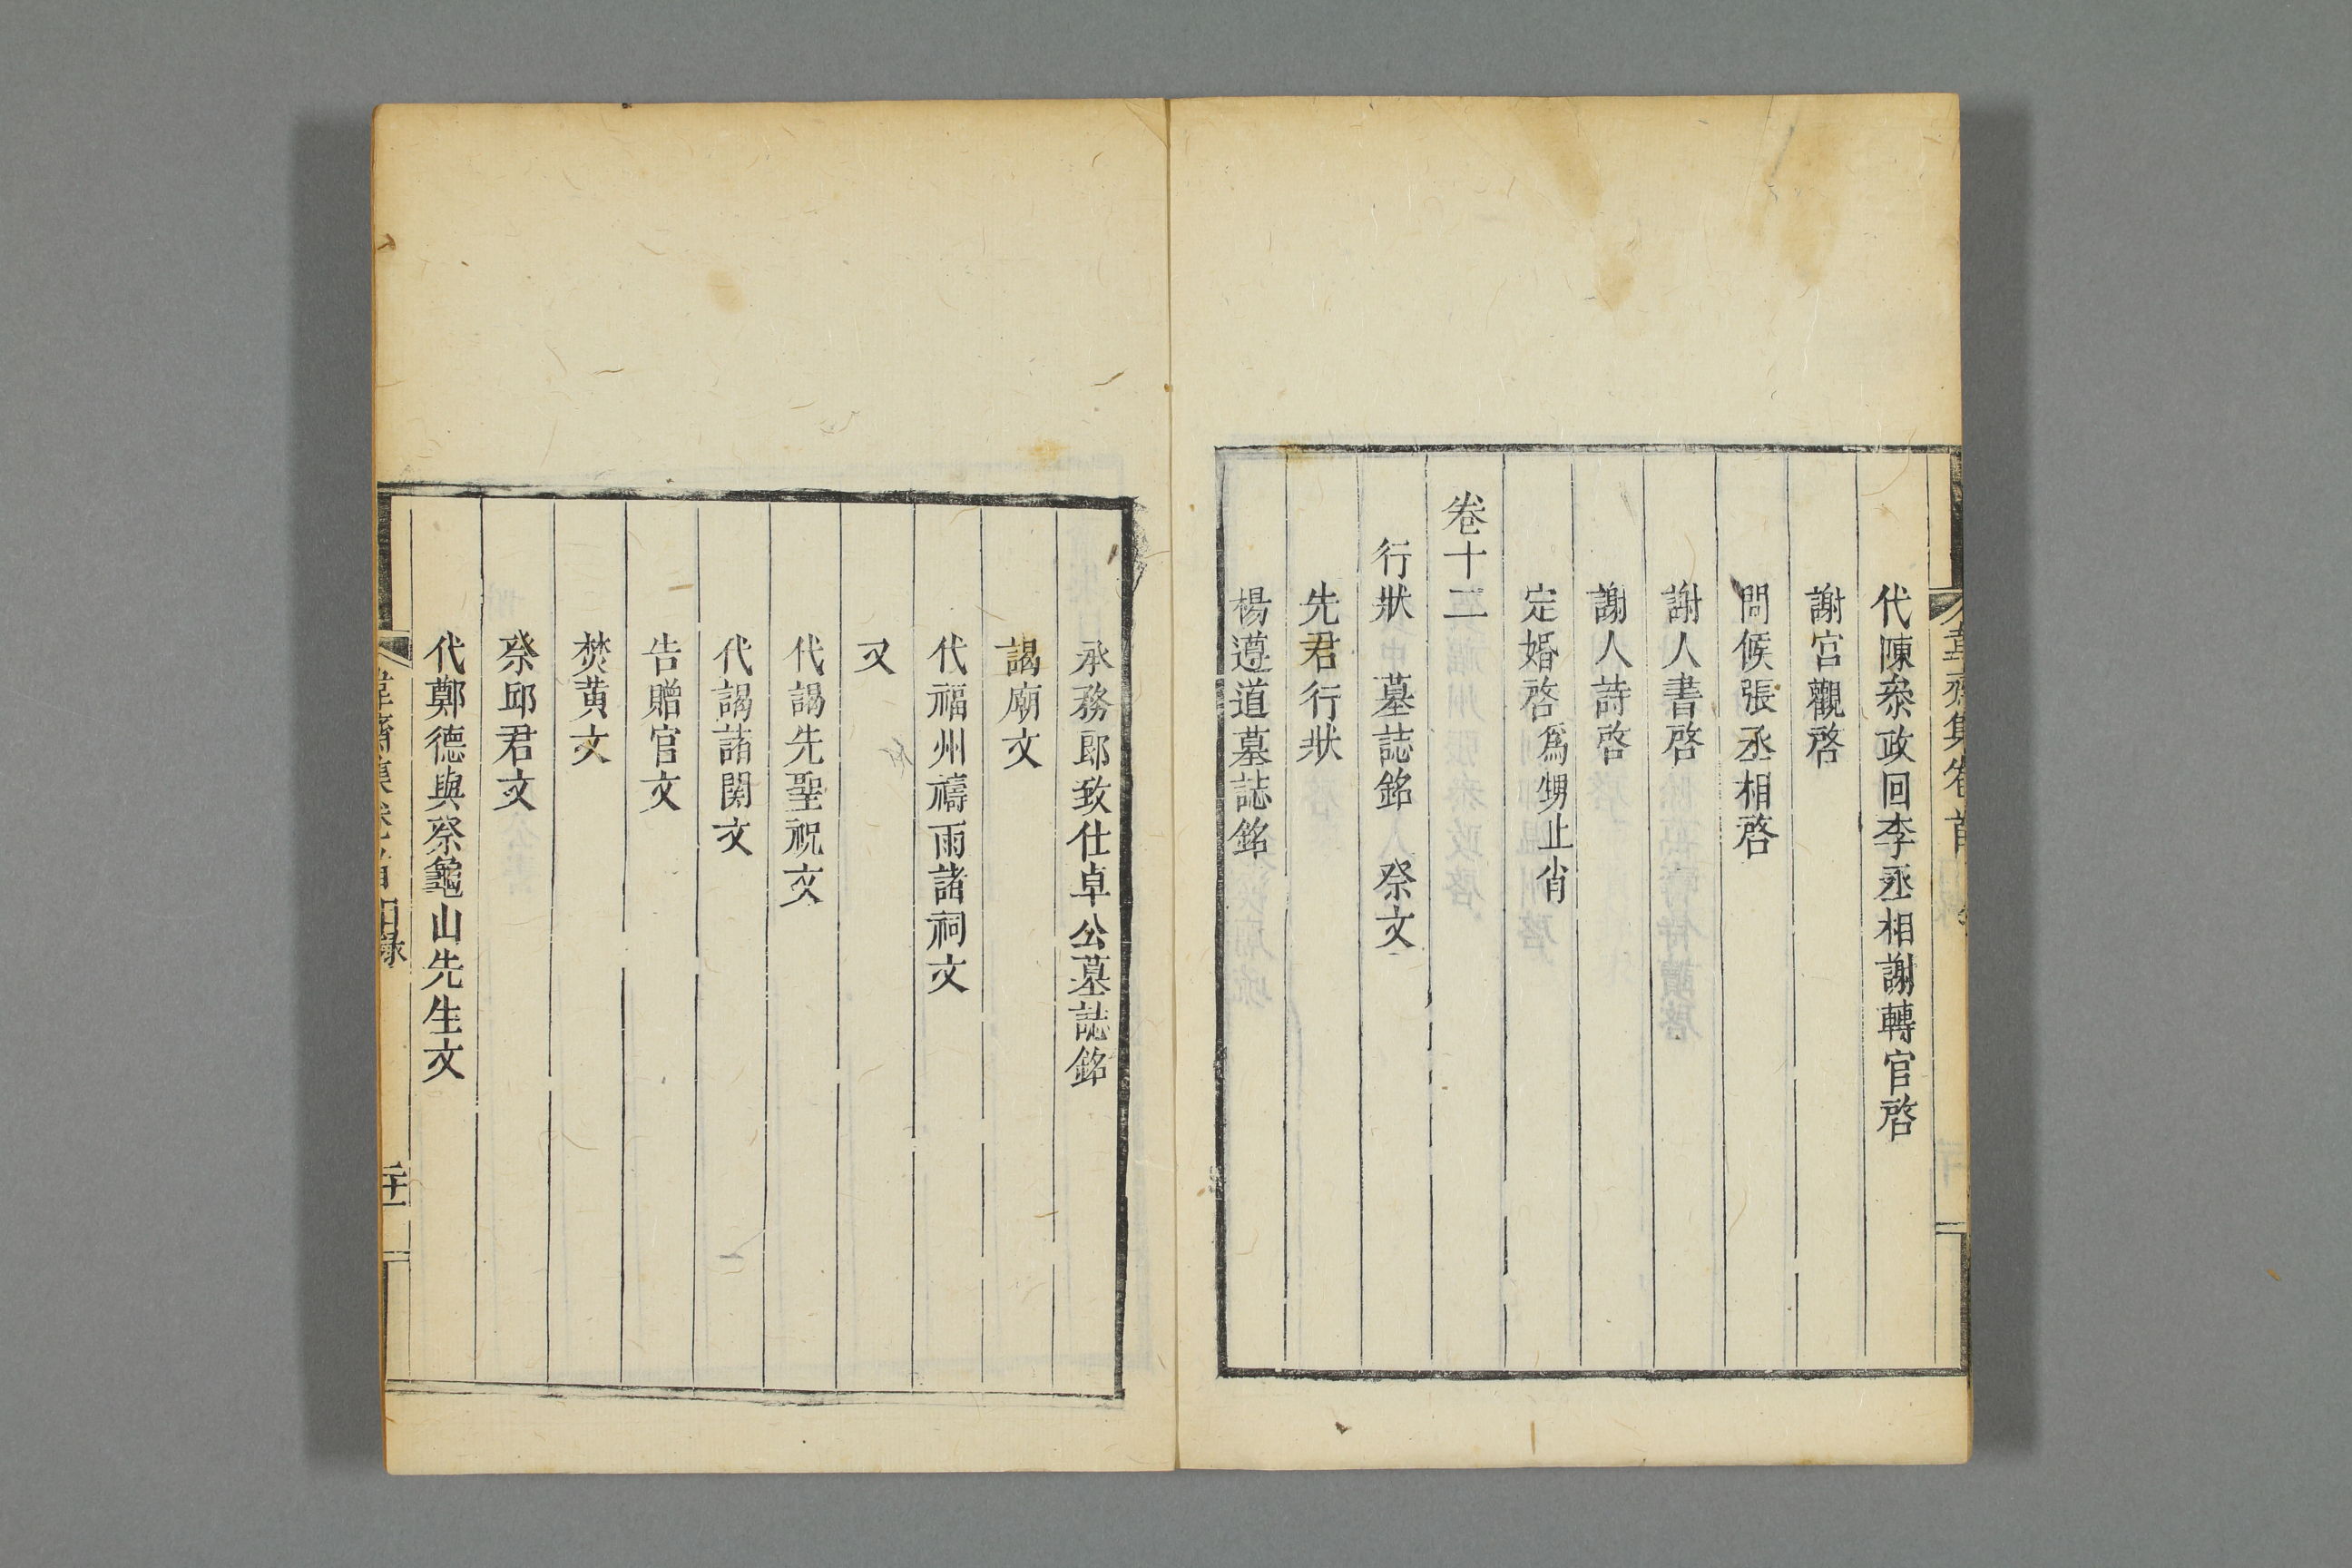 代陳叅政回李丞相謝轉官啓
謝宮觀啓
問候張丞相啓
謝人書啓
謝人詩啓
定婚啓爲甥止肖
卷十二
行狀 墓誌銘 祭文
先君行狀
楊遵道墓誌銘
承務郎致仕卓公墓誌銘
謁廟文
代福州禱雨諸祠文
又
代謁先聖祝文
代謁諸閣文
告贈官文
焚黄文
祭邱君文
代鄭德與祭龜山先生文
韋齋集卷首 目録